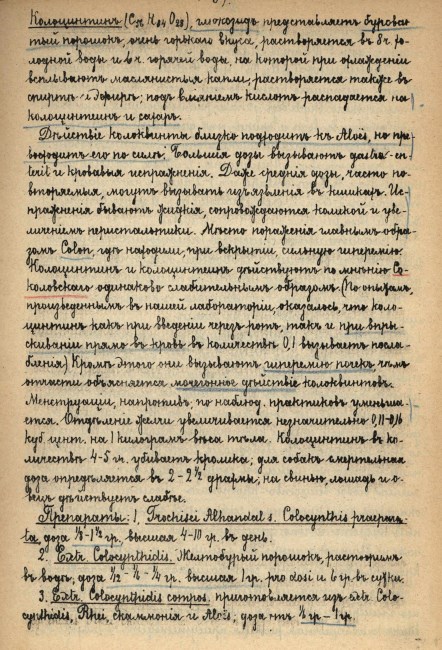 Колоцинтинъ (C56 H84 O23), глюкозидъ представляетъ буроваі
тый порошокъ, очень горькаго вкуса, растворяется въ 8 ч. хо-
лодной воды и 6 ч. горячей воды, на которой при охлажденіи
всплываютъ маслянистыя капли, растворяется также въ
спиртѣ и эфирѣ; подъ вліяніемъ кислотъ распадается на
колоцинтеинъ и сахаръ.
Дѣйствіе колоквинты близко подходитъ къ Aloës, но пре-
восходитъ его по силѣ; большія дозы вызываютъ gastro-en-
terit и кровавыя испражненія. Даже среднія дозы, часто по-
вторяемыя, могутъ вызывать изъязвленія въ кишкахъ. Ис-
пражненія бываютъ жидкія, сопровождаются коликой и уве-
личеніемъ перистальтики. Мѣсто пораженія главнымъ обра-
зомъ Colon, гдѣ находили, при вскрытіи, сильную гиперемію.
Колоцинтинъ и колоцинтеинъ дѣйствуютъ по мнѣнію Со-
коловскаго одинаково слабительнымъ образомъ. (По опытамъ,
произведеннымъ въ нашей лабораторіи, оказалось, что коло-
цинтинъ какъ при введеніи черезъ ротъ, такъ и при впры-
скиваніи прямо въ кровь въ количествѣ 0,1 вызываетъ посла-
бленія.) Кромѣ этого они вызываютъ гиперемію почекъ, чѣмъ
отчасти объясняется мочегонное дѣйствіе колоквинтовъ.
Менструаціи, напротивъ, по наблюд. практиковъ уменьша-
ется. Отдѣленіе желчи увеличивается незначительно 0,11-0,16
куб. цент. на 1 килограмъ вѣса тѣла. Колоцинтинъ въ ко-
личествѣ 4-5 гн. убиваетъ кролика; для собакъ смертельная
доза опредѣляется въ 2 - 2 1/2 драхмы; на свинью, лошадь и о-
вецъ дѣйствуетъ слабѣе.
Препараты: 1, Trochisci Alhandal s. Colocynthis praepara-
ta, доза 1/3-1 1/2 гр., высшая 4-10 гр. въ день.
2. Extr. Colocynthidis. Желтобурый порошокъ, растворимъ
въ водѣ; доза 1/12 - 1/6 - 1/4 гр. высшая 1 гр. pro dosi и 6 гр. въ сутки.
3. Extr. Colocynthidis compos. приготовляется изъ extr. Colo-
cynthidis, Rhei, скаммонія и Aloës; доза отъ 1/6 гр - 1 гр.